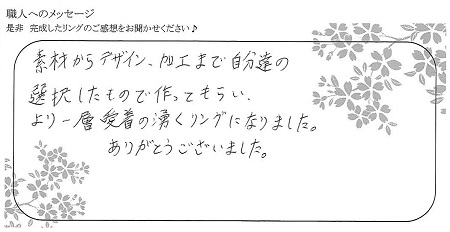 職人へのメッセージ
是非 完成したリングのご感想をお聞かせください♪
素材からデザイン、加工まで自分達の
選択したもので作ってもらい、
より一層愛着の湧くリングになりました。
ありがとうございました。